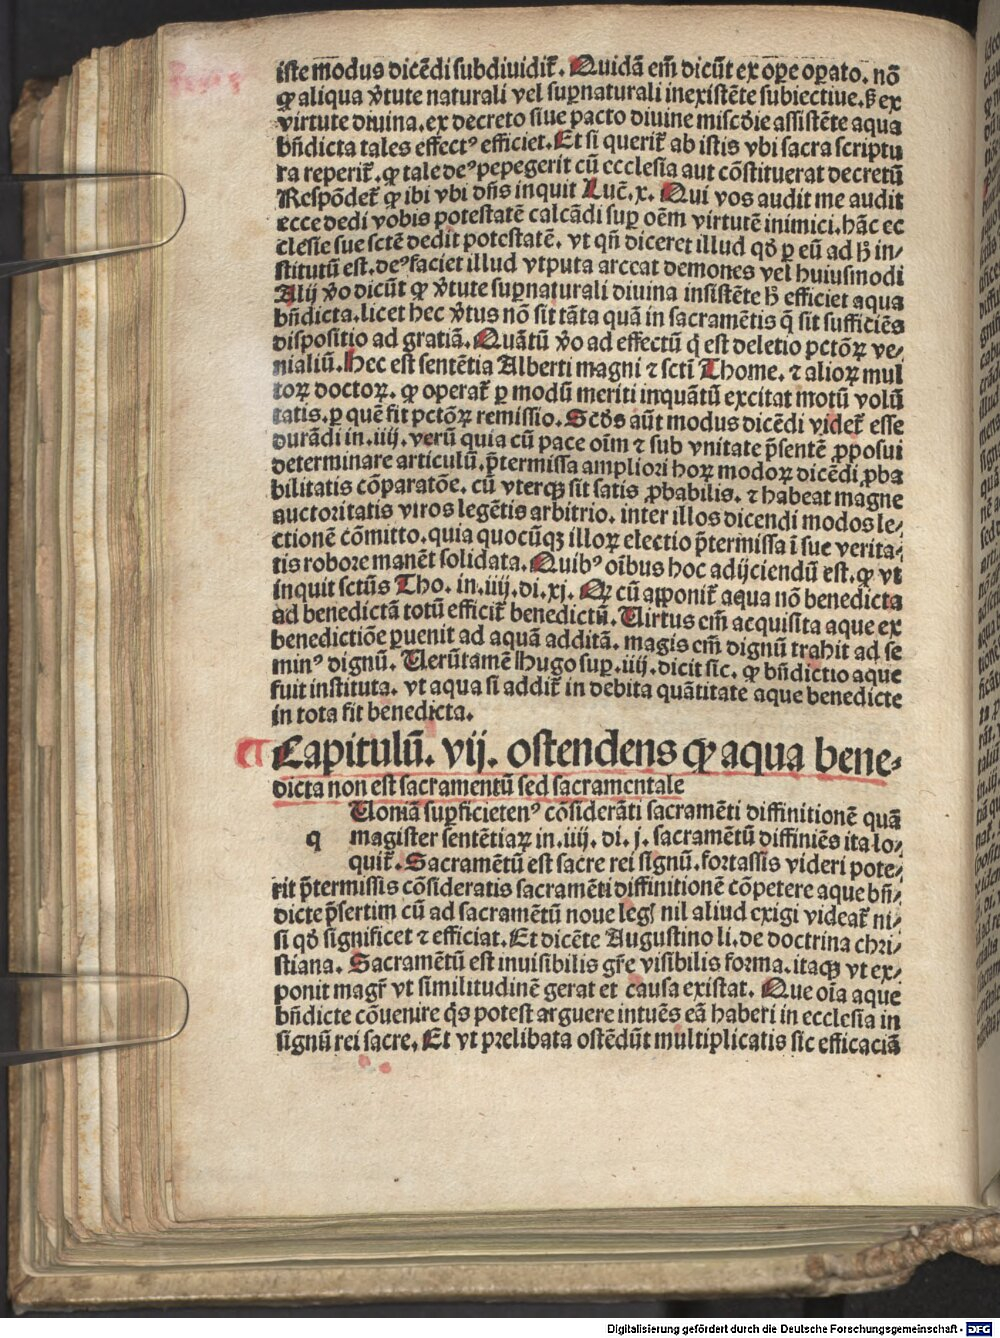 iste modus dicẽdi subdiuidit᷑. Quidã em̃ dicũt ex oꝑe oꝑato. nõ
ꝙ aliqua v̾tute naturali vel suꝑnaturali inexistẽte subiectiue. s̾ ex
virtute diuina. ex decreto siue pacto diuine misc̃die assistẽte aqua
bñdicta tales effectꝰ efficiet. Et si querit᷑ ab istis vbi sacra scriptu
ra reperit᷑. ꝙ tale deꝰ pepegerit cũ ecclesia aut cõstituerat decretũ
Respõdet᷑ ꝙ ibi vbi dñs inquit Luc̃. x. Qui vos audit me audit
ecce dedi vobis potestatẽ calcãdi suꝑ oẽm virtutẽ inimici. hãc ec
clesie sue sctẽ dedit potestatẽ. vt qñ diceret illud qd̾ ꝑ eũ ad h̾ in⸗
stitutũ est. deꝰ faciet illud vtputa arceat demones vel huiusmodi
Alij v̾o dicũt ꝙ v̾tute suꝑnaturali diuina insistẽte h̾ efficiet aqua
bñdicta. licet hec v̾tus nõ sit tãta quã in sacramẽtis q̃ sit sufficiẽs
dispositio ad gratiã. Quãtũ v̾o ad effectũ q̇ est deletio pctõꝝ ve⸗
nialiũ. Hec est sentẽtia Alberti magni ⁊ scti Thome. ⁊ alioꝝ mul
toꝝ doctoꝝ. ꝙ operat᷑ ꝑ modũ meriti inquãtũ excitat motũ volũ
tatis. ꝑ quẽ fit pctõꝝ remissio. Scd̾s aũt modus dicẽdi videt᷑ esse
durãdi in. iiij. verũ quia cũ pace oĩm ⁊ sub vnitate p̃sentẽ ꝓposui
determinare articulũ. p̃termissa ampliori hoꝝ modoꝝ dicẽdi ꝓba
bilitatis cõparatõe. cũ vterqꝫ sit satis ꝓbabilis. ⁊ habeat magne
auctoritatis viros legẽtis arbitrio. inter illos dicendi modos le⸗
ctionẽ cõmitto. quia quocũqꝫ illoꝝ electio p̃termissa ĩ sue verita⸗
tis robore manẽt solidata. Quibꝰ oĩbus hoc adijciendũ est. ꝙ vt
inquit sctũs Tho. in. iiij. di. xj. Qꝝ cũ aꝓponit᷑ aqua nõ benedicta
ad benedictã totũ efficit᷑ benedictũ. Uirtus em̃ acquisita aque ex
benedictiõe ꝑuenit ad aquã additã. magis em̃ dignũ trahit ad se
minꝰ dignũ. Uerũtamẽ Hugo suꝑ. iiij. dicit sic. ꝙ bñdictio aque
fuit instituta. vt aqua si addit᷑ in debita quãtitate aque benedicte
in tota fit benedicta.
¶ Capitulũ. vij. ostendens ꝙ aqua bene⸗
dicta non est sacramentũ sed sacramentale
Uoniã suꝑficietenꝰ cõsiderãti sacramẽti diffinitionẽ quã
q magister sentẽtiaꝝ in. iiij. di. j. sacramẽtũ diffiniẽs ita lo⸗
quit᷑. Sacramẽtũ est sacre rei signũ. fortassis videri pote⸗
rit p̃termissis cõsideratis sacramẽti diffinitionẽ cõpetere aque bñ⸗
dicte p̃sertim cũ ad sacramẽtũ noue legꝭ nil aliud exigi videat᷑ ni⸗
si qd̾ significet ⁊ efficiat. Et dicẽte Augustino li. de doctrina chri⸗
stiana. Sacramẽtũ est inuisibilis gr̃e visibilis forma. itaqꝫ vt ex⸗
ponit magr̃ vt similitudinẽ gerat et causa existat. Que oĩa aque
bñdicte cõuenire q̇s potest arguere intuẽs eã haberi in ecclesia in
signũ rei sacre. Et vt prelibata ostẽdũt multiplicatis sic efficaciã
Digitalisierung gefördert durch die Deutsche Forschungsgemeinschaft - DFG